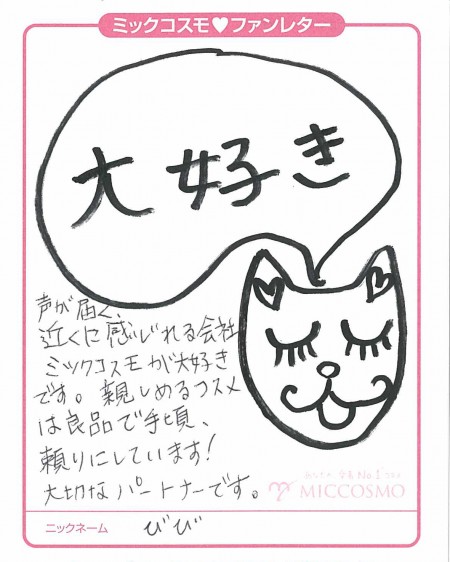 ミックコスモ♥ファンレター
大好き
声が届く、
近くに感じれる会社
ミックコスモが大好き
です。親しめるコスメ
は良品で手頃、
頼りにしています!
大切なパートナーです。
MICCOSMO
ニックネーム びび